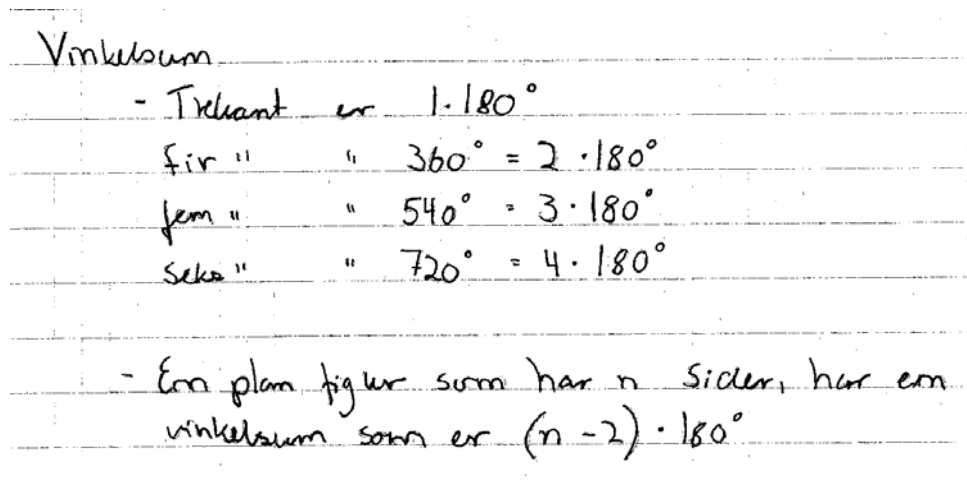 Vinkelsum
- Trekant er 1·180°
fir " " 360° = 2·180°
fem " " 540° = 3·180°
seks " " 720° = 4·180°
- En plan figur som har n sider, har en
vinkelsum som er (n-2)·180°